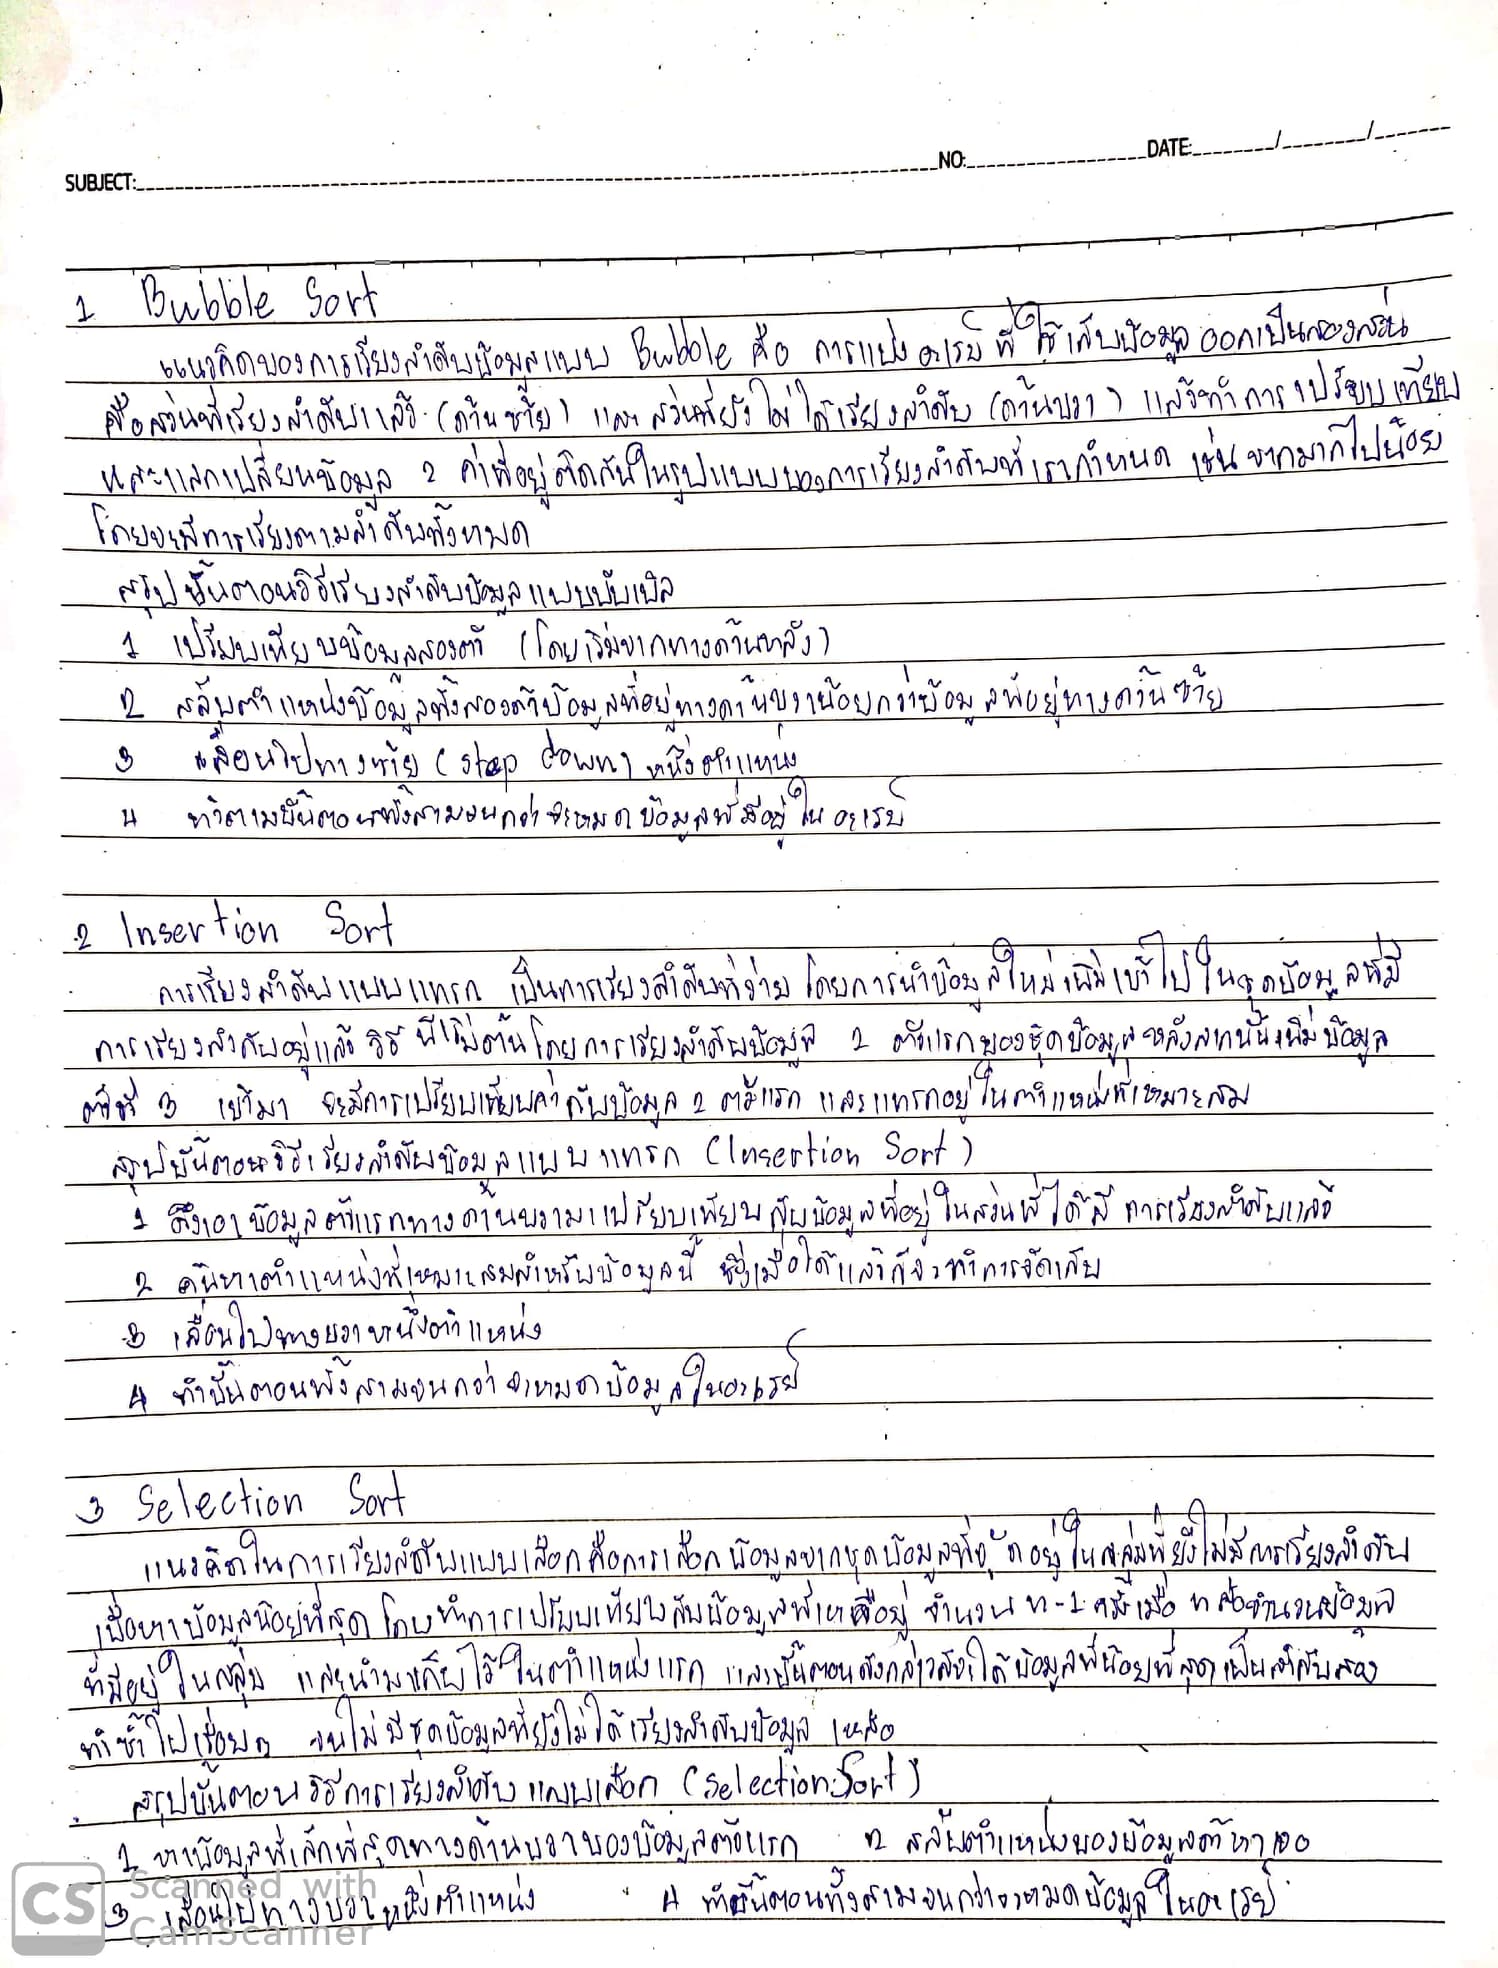 SUBJECT: NO: DATE: / /
1 Bubble Sort
แนวคิดของการเรียงลำดับข้อมูลแบบ Bubble คือ การแบ่งอะเรย์ที่ใช้เก็บข้อมูลออกเป็นสองส่วน
คือส่วนที่เรียงลำดับแล้ว (ด้านซ้าย) และส่วนที่ยังไม่ได้เรียงลำดับ (ด้านขวา) แล้วทำการเปรียบเทียบ
และแลกเปลี่ยนข้อมูล 2 ค่าที่อยู่ติดกันในรูปแบบของการเรียงลำดับที่เรากำหนด เช่น จากมากไปน้อย
โดยจะมีการเรียงตามลำดับทั้งหมด
สรุปขั้นตอนวิธีเรียงลำดับข้อมูลแบบบับเบิล
1 เปรียบเทียบข้อมูลสองตัว (โดยเริ่มจากทางด้านหลัง)
2 สลับตำแหน่งข้อมูลทั้งสองตัวข้อมูลที่อยู่ทางด้านขวาน้อยกว่าข้อมูลที่อยู่ทางด้านซ้าย
3 เลื่อนไปทางซ้าย (step down) หนึ่งตำแหน่ง
4 ทำตามขั้นตอนทั้งสามจนกว่าจะหมดข้อมูลที่มีอยู่ในอะเรย์
2 Insertion Sort
การเรียงลำดับแบบแทรก เป็นการเรียงลำดับที่ง่าย โดยการนำข้อมูลใหม่เพิ่มเข้าไปในชุดข้อมูลที่มี
การเรียงลำดับอยู่แล้ว วิธีนี้เริ่มต้นโดยการเรียงลำดับข้อมูล 2 ตัวแรกของชุดข้อมูล หลังจากนั้นเพิ่มข้อมูล
ตัวที่ 3 เข้ามา จะมีการเปรียบเทียบค่ากับข้อมูล 2 ตัวแรก และแทรกอยู่ในตำแหน่งที่เหมาะสม
สรุปขั้นตอนวิธีเรียงลำดับข้อมูลแบบแทรก (Insertion Sort)
1 ดึงเอาข้อมูลตัวแรกทางด้านขวามาเปรียบเทียบกับข้อมูลที่อยู่ในส่วนที่ได้มีการเรียงลำดับแล้ว
2 ค้นหาตำแหน่งที่เหมาะสมสำหรับข้อมูลนี้ ซึ่งเมื่อได้แล้วก็จะทำการจัดเก็บ
3 เลื่อนไปทางขวาหนึ่งตำแหน่ง
4 ทำขั้นตอนทั้งสามจนกว่าจะหมดข้อมูลในอะเรย์
3 Selection Sort
แนวคิดในการเรียงลำดับแบบเลือกคือการเลือกข้อมูลจากชุดข้อมูลที่จัดอยู่ในกลุ่มที่ยังไม่มีการเรียงลำดับ
เพื่อหาข้อมูลน้อยที่สุด โดยทำการเปรียบเทียบกับข้อมูลที่เหลืออยู่ จำนวน n-1 ครั้งเมื่อ n คือจำนวนข้อมูล
ที่มีอยู่ในกลุ่ม และนำมาเก็บไว้ในตำแหน่งแรก และขั้นตอนดังกล่าวได้ข้อมูลที่น้อยที่สุดเป็นลำดับสอง
ทำซ้ำไปเรื่อยๆ จนไม่มีชุดข้อมูลที่ยังไม่ได้เรียงลำดับข้อมูล เหลือ
สรุปขั้นตอนวิธีการเรียงลำดับแบบเลือก (Selection Sort)
1 หาข้อมูลที่เล็กที่สุดทางด้านขวาของข้อมูลตัวแรก 2 สลับตำแหน่งของข้อมูลตัวหาเจอ
3 เลื่อนไปทางขวาหนึ่งตำแหน่ง 4 ทำขั้นตอนทั้งสามจนกว่าจะหมดข้อมูลในอะเรย์
CS Scanned with
CamScanner